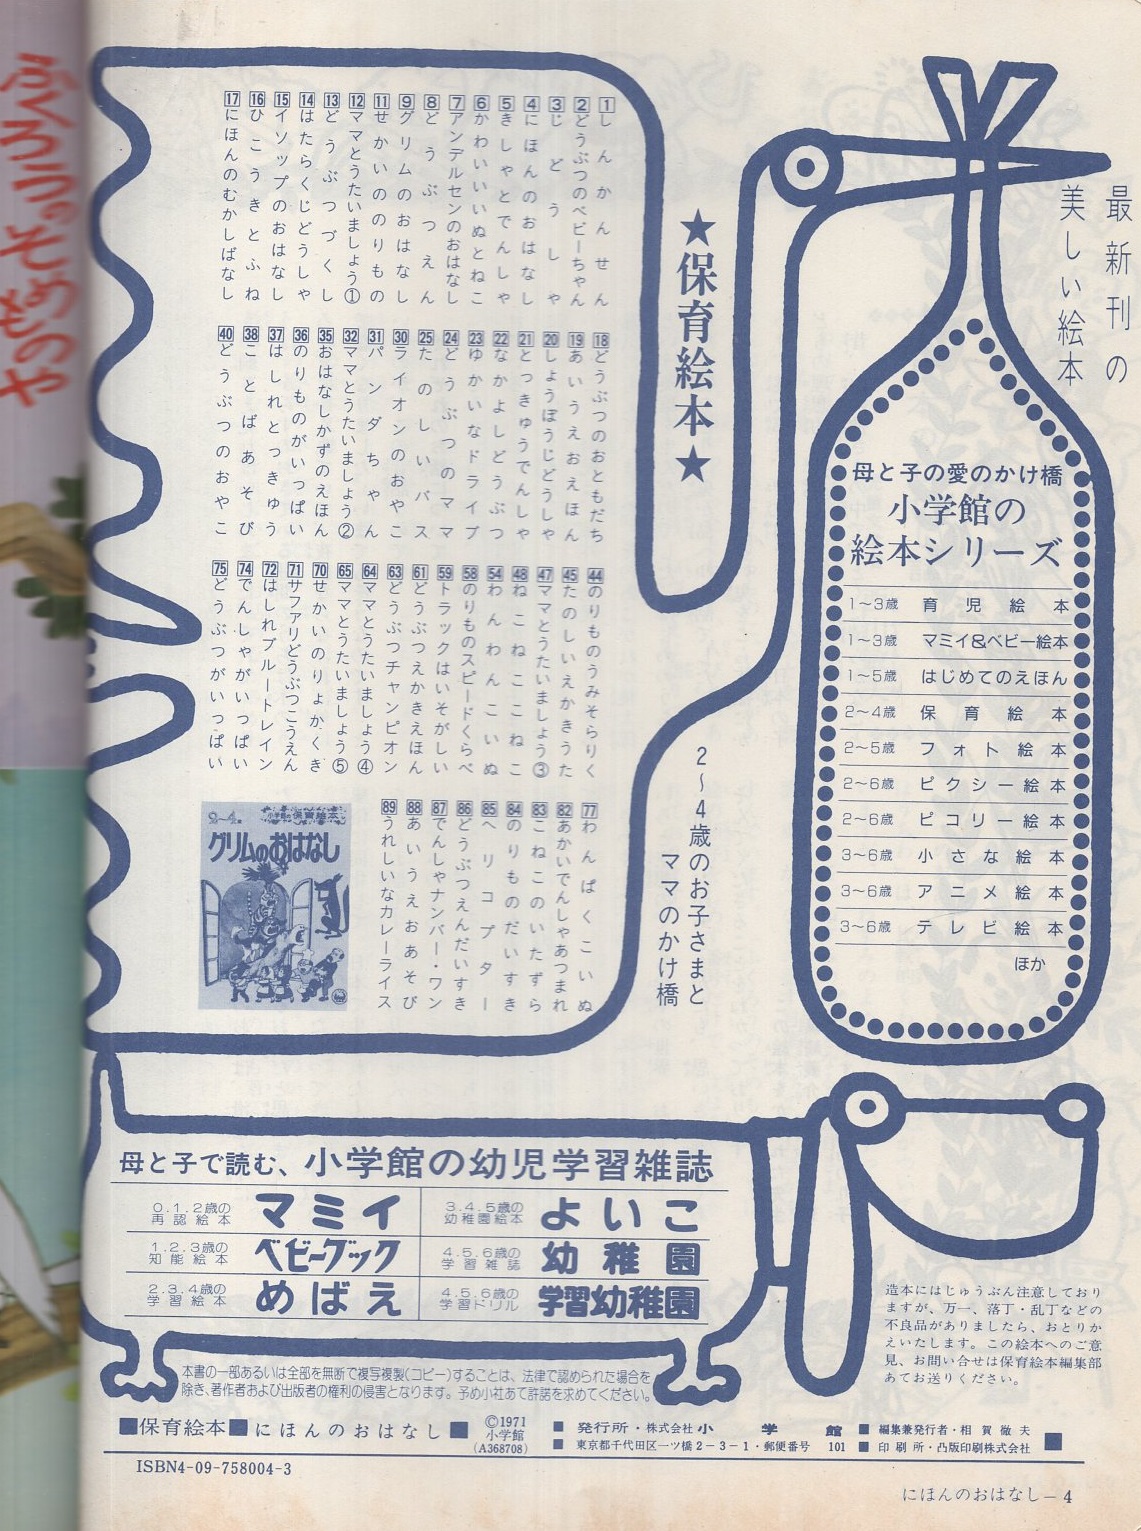 ふくろうのそめものや
最新刊の
美しい絵本
母と子の愛のかけ橋
小学館の
絵本シリーズ
1〜3歳 育児絵本
1〜3歳 マミイ&ベビー絵本
1〜5歳 はじめてのえほん
2〜4歳 保育絵本
2〜5歳 フォト絵本
2〜6歳 ピクシー絵本
2〜6歳 ピコリー絵本
3〜6歳 小さな絵本
3〜6歳 アニメ絵本
3〜6歳 テレビ絵本
ほか
★保育絵本★
2〜4歳のお子さまと
ママのかけ橋
1 しんかんせん
2 どうぶつのベビーちゃん
3 じどうしゃ
4 にほんのおはなし
5 きしゃとでんしゃ
6 かわいいいぬとねこ
7 アンデルセンのおはなし
8 どうぶつえん
9 グリムのおはなし
11 せかいののりもの
12 ママとうたいましょう①
13 どうぶつづくし
14 はたらくじどうしゃ
15 イソップのおはなし
16 ひこうきとふね
17 にほんのむかしばなし
18 どうぶつのおともだち
19 あいうえおえほん
20 しょうぼうじどうしゃ
21 とっきゅうでんしゃ
22 なかよしどうぶつ
23 ゆかいなドライブ
24 どうぶつのママ
25 たのしいバス
30 ライオンのおやこ
31 パンダちゃん
32 ママとうたいましょう②
35 おはなしかずのえほん
36 のりものがいっぱい
37 はしれとっきゅう
38 ことばあそび
40 どうぶつのおやこ
44 のりものうみそらりく
45 たのしいえかきうた
47 ママとうたいましょう③
48 ねこねここねこ
54 わんわんこいぬ
58 のりものスピードくらべ
59 トラックはいそがしい
61 どうぶつえかきえほん
63 どうぶつチャンピオン
64 ママとうたいましょう④
65 ママとうたいましょう⑤
70 せかいのりょかくき
71 サファリどうぶつこうえん
72 はしれブルートレイン
74 でんしゃがいっぱい
75 どうぶつがいっぱい
77 わんぱくこいぬ
82 あかいでんしゃあつまれ
83 こねこのいたずら
84 のりものだいすき
85 ヘリコプター
86 どうぶつえんだいすき
87 でんしゃナンバー・ワン
88 あいうえおあそび
89 うれしいなカレーライス
2〜4歳 小学館の保育絵本
グリムのおはなし
母と子で読む、小学館の幼児学習雑誌
0.1.2歳の再認絵本 マミイ
1.2.3歳の知能絵本 ベビーブック
2.3.4歳の学習絵本 めばえ
3.4.5歳の幼稚園絵本 よいこ
4.5.6歳の学習雑誌 幼稚園
4.5.6歳の学習ドリル 学習幼稚園
造本にはじゅうぶん注意しており
ますが、万一、落丁・乱丁などの
不良品がありましたら、おとりか
えいたします。この絵本へのご意
見、お問い合せは保育絵本編集部
あてお送りください。
本書の一部あるいは全部を無断で複写複製(コピー)することは、法律で認められた場合を
除き、著作者および出版者の権利の侵害となります。予め小社あて許諾を求めてください。
■保育絵本■にほんのおはなし■
©1971
小学館
(A368708)
■ 発行所・株式会社 小学館
■ 東京都千代田区一ツ橋2-3-1・郵便番号 101
■ 編集兼発行者・相賀徹夫
■ 印刷所・凸版印刷株式会社 ■
ISBN4-09-758004-3
にほんのおはなし—4